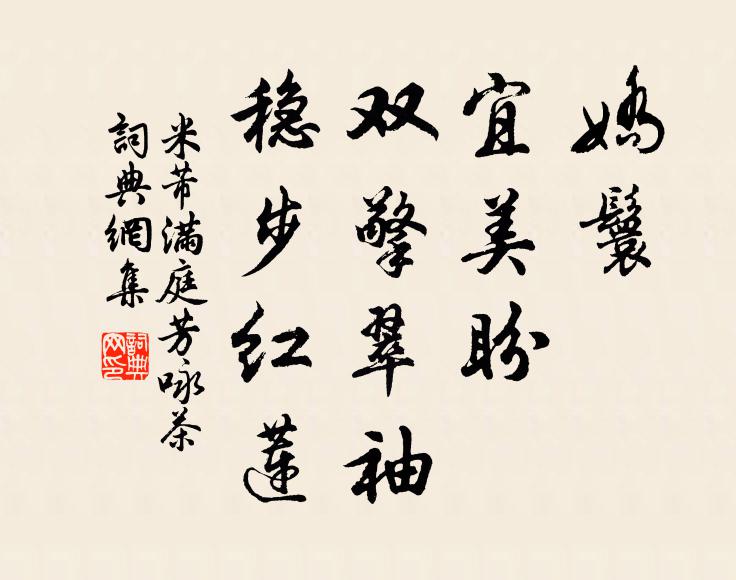 娇鬟
宜美盼
双擎翠袖
稳步红莲
米芾满庭芳咏茶
詞典網集
詞典网印